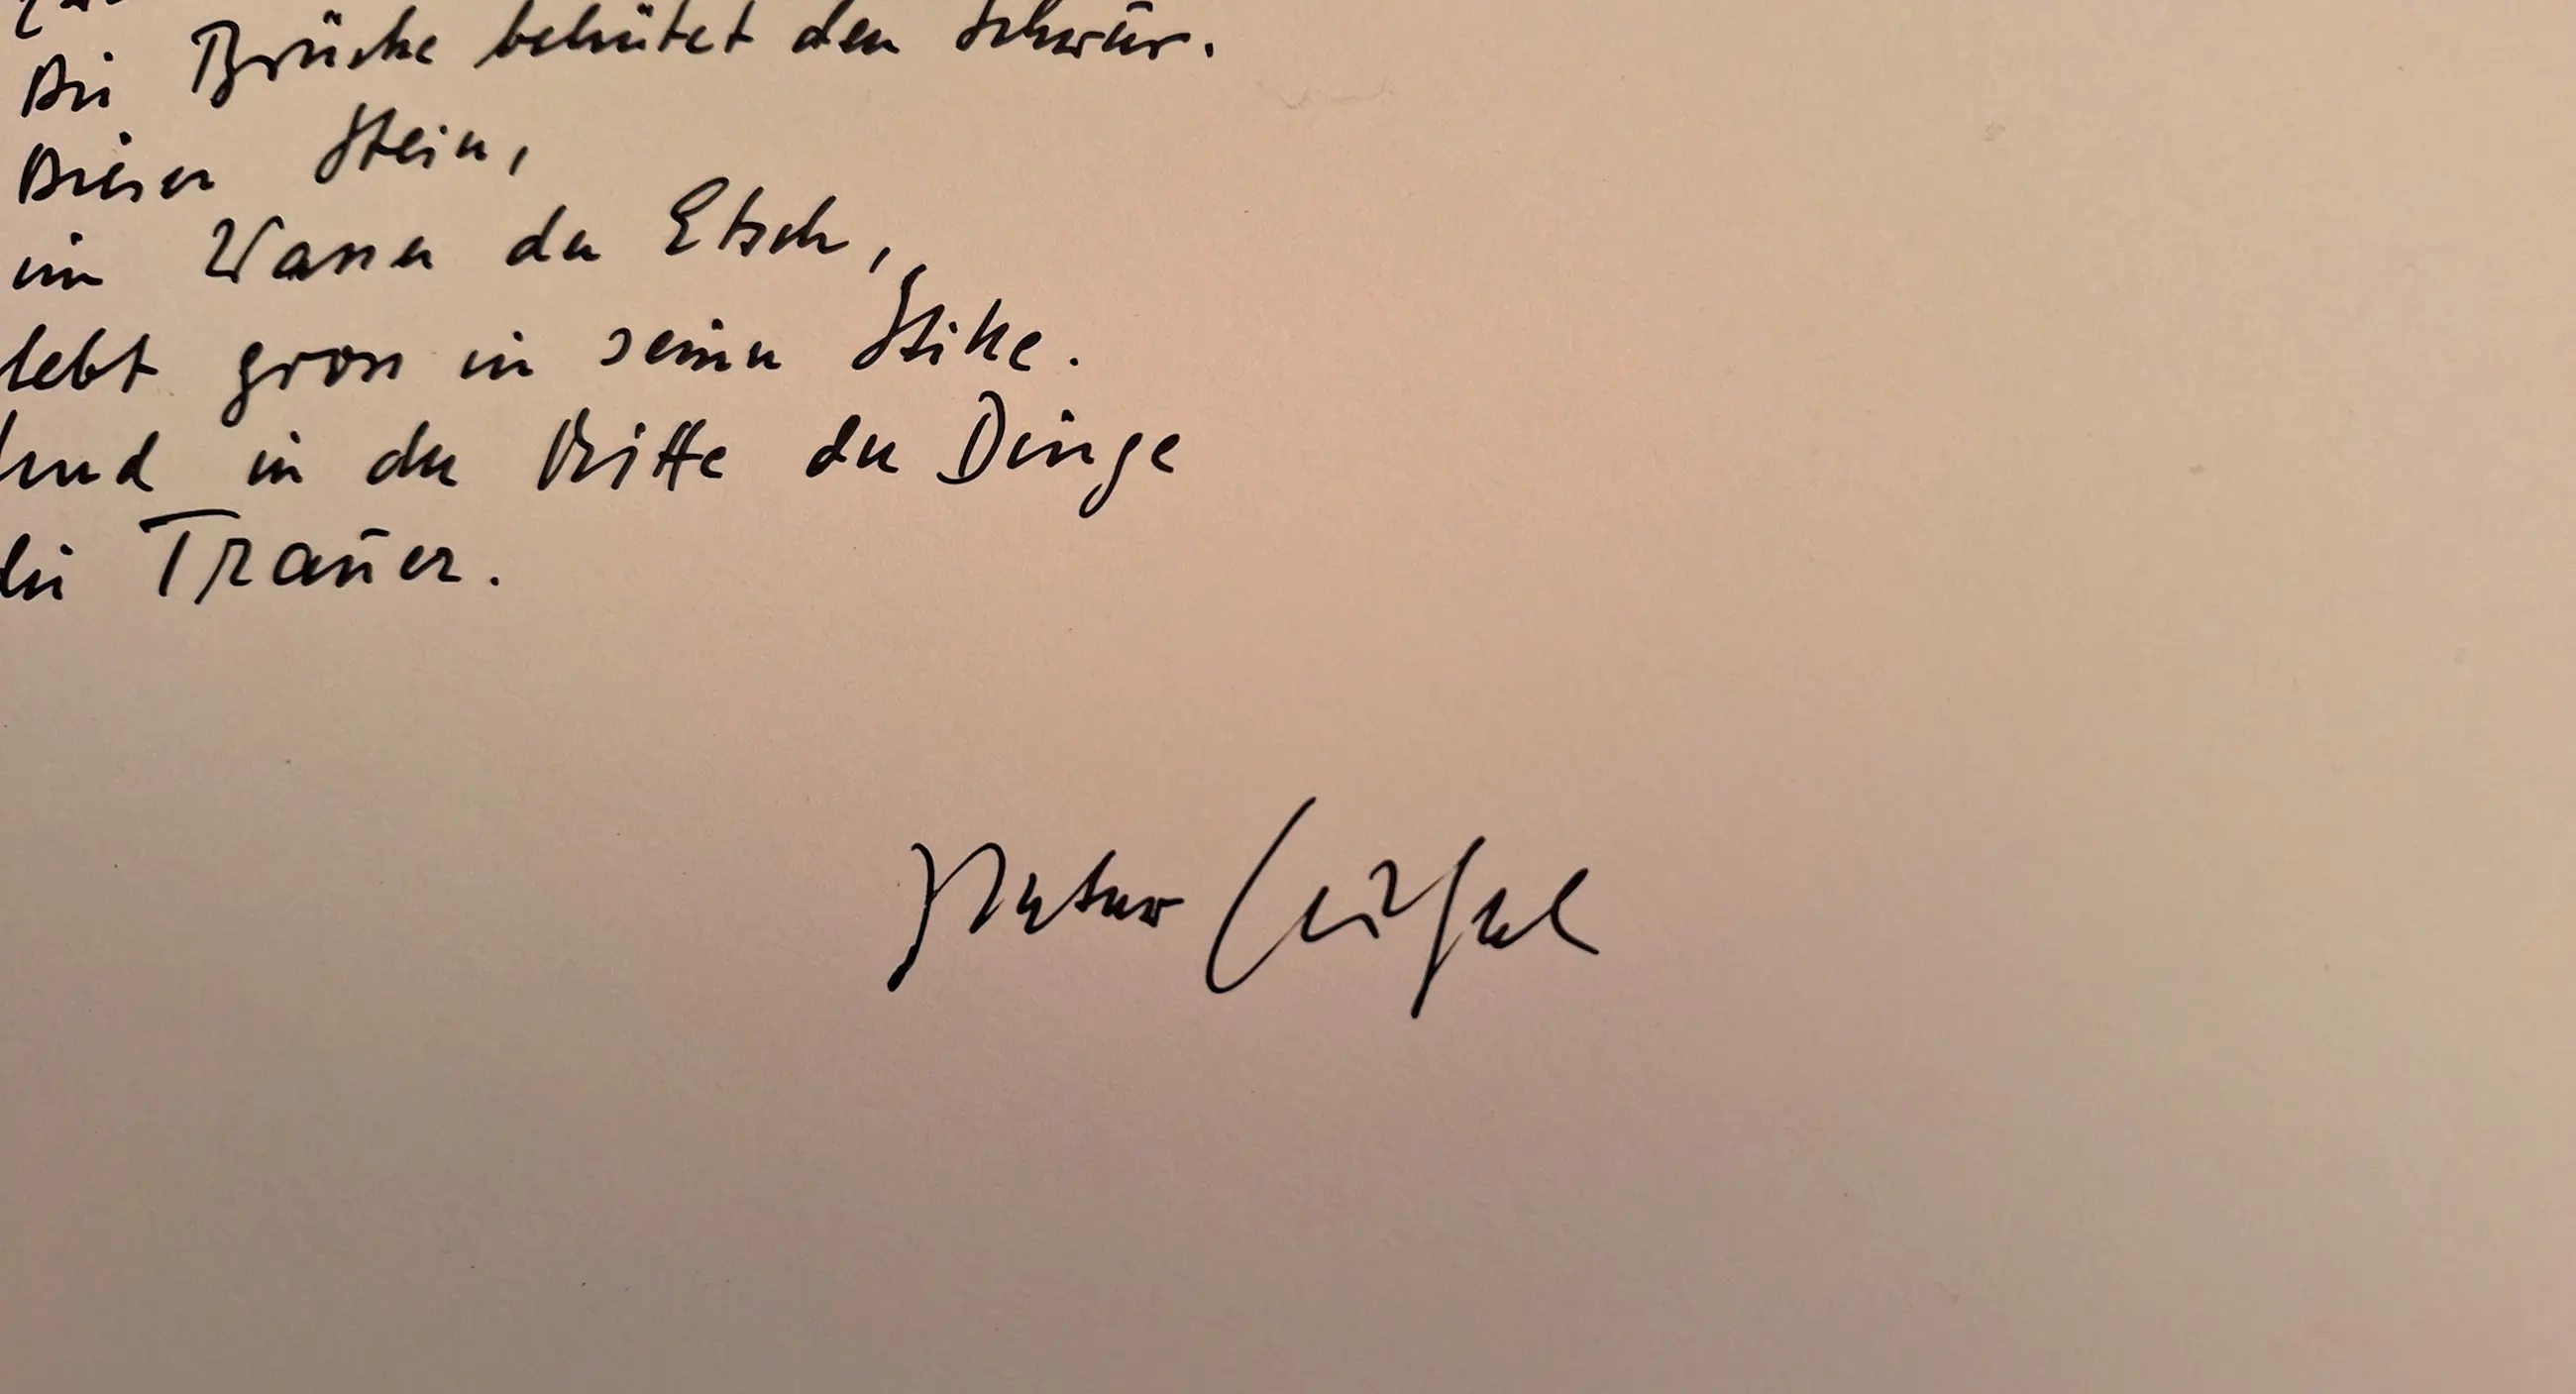 Die Brücke behütet den Schwur.
Dieser Stein,
im Wasser der Etsch,
lebt gross in seiner Stille.
Und in der Mitte der Dinge
die Trauer.
Peter Huchel